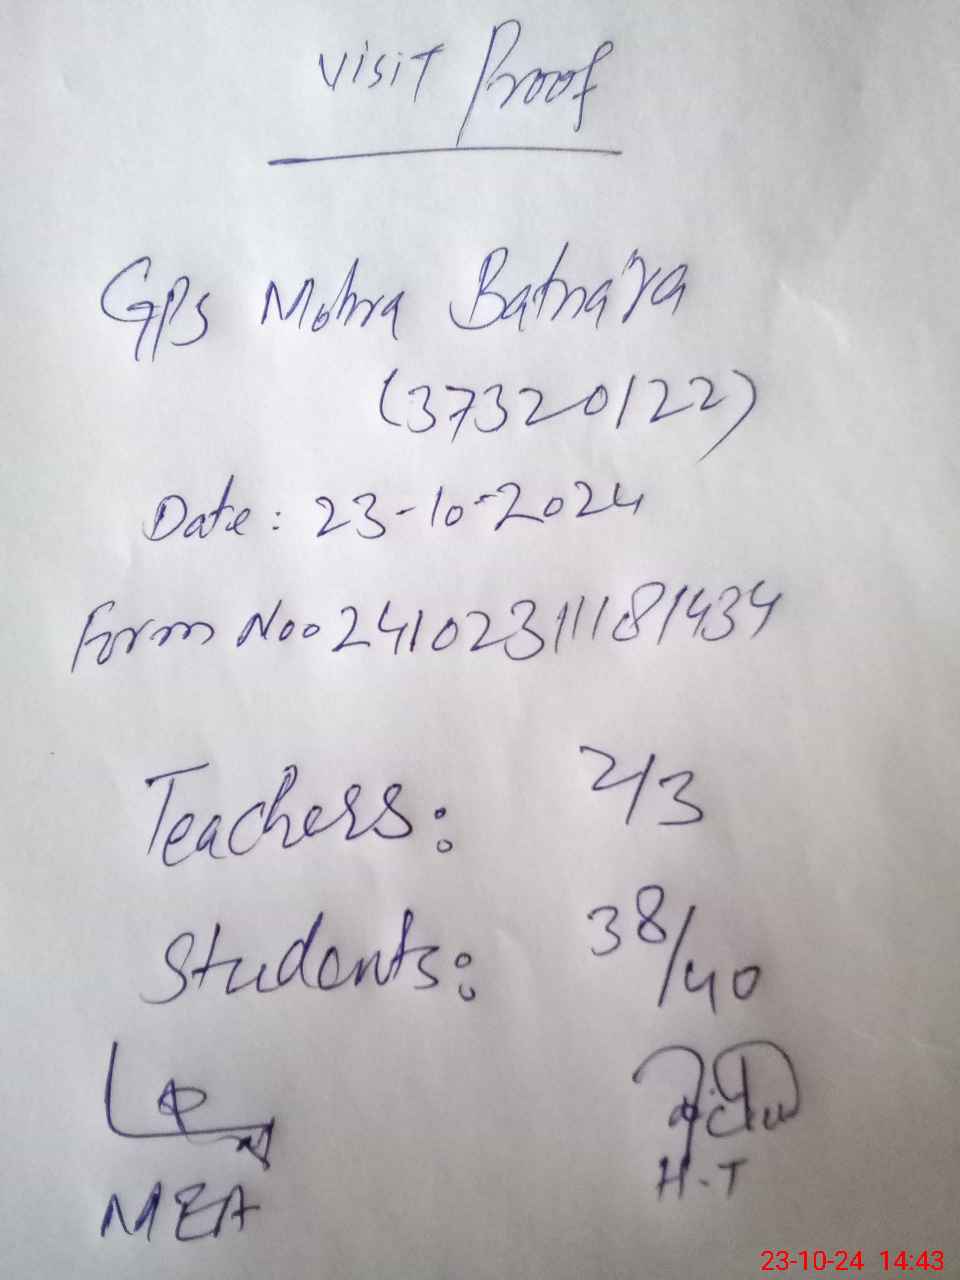 Visit Proof
GPS Mohra Batnara
(37320122)
Date: 23-10-2024
Form No. 24102311181434
Teachers: 2/3
Students: 38/40
MEA
H.T
23-10-24 14:43